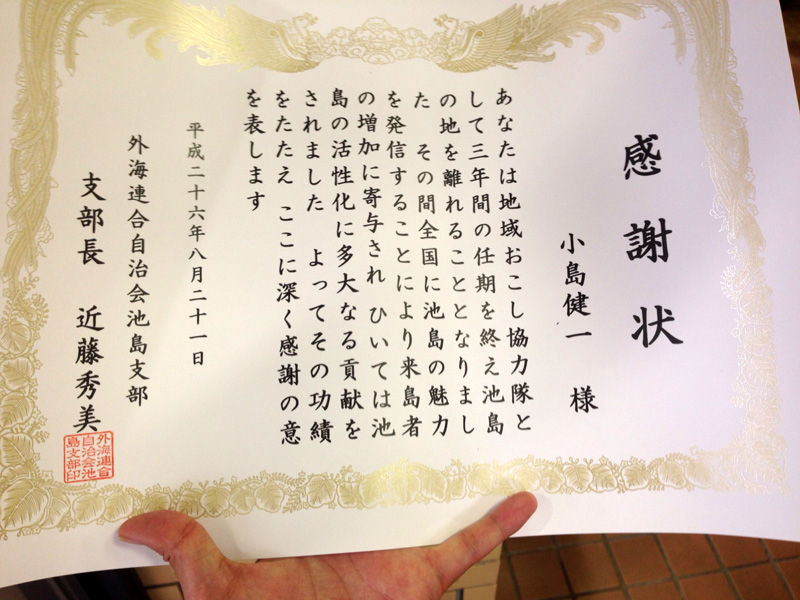 感謝状
小島健一 様
あなたは地域おこし協力隊と
して三年間の任期を終え池島
の地を離れることとなりまし
た その間全国に池島の魅力
を発信することにより来島者
の増加に寄与され ひいては池
島の活性化に多大なる貢献を
されました よってその功績
をたたえ ここに深く感謝の意
を表します
平成二十六年八月二十一日
外海連合自治会池島支部
支部長 近藤秀美
外海連合
自治会池
島支部印